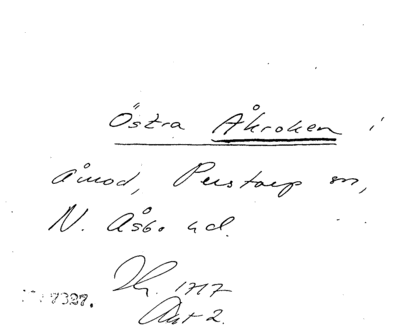 Östra Åkroken i
åmod, Perstorp sn,
N. Åsbo hd.
1717
Akt 2.
7327.